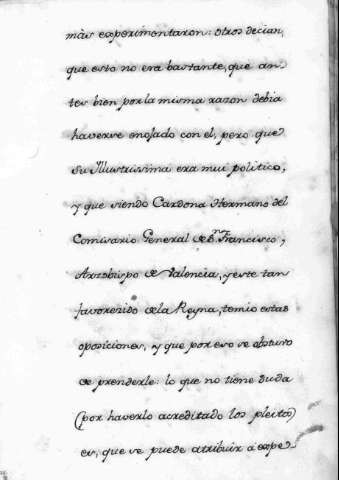 màs experimentaron: otros decian,
que esto no era bastante, que an-
tes bien por la misma razon debia
haverse enojado con el, pero que
su Illustrissima era mui politico,
y que siendo Cardona Hermano del
Comisario General de Sn. Francisco,
Arzobispo de Valencia, y este tan
favorecido de la Reyna, temio estas
oposiciones, y que por eso se obstuvo
de prenderle: lo que no tiene duda
(por haverlo acreditado los pleitos)
es, que se puede atribuir à expe-